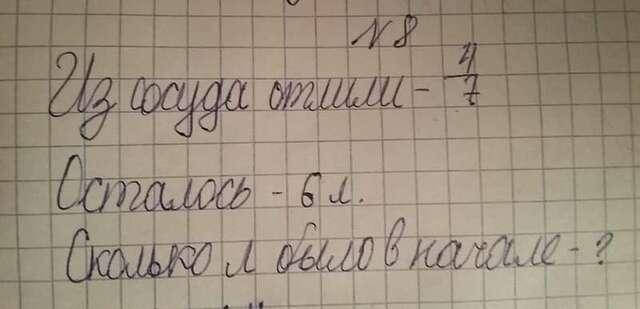 № 8
Из сосуда отлили - 4/7
Осталось - 6 л.
Сколько л было в начале - ?